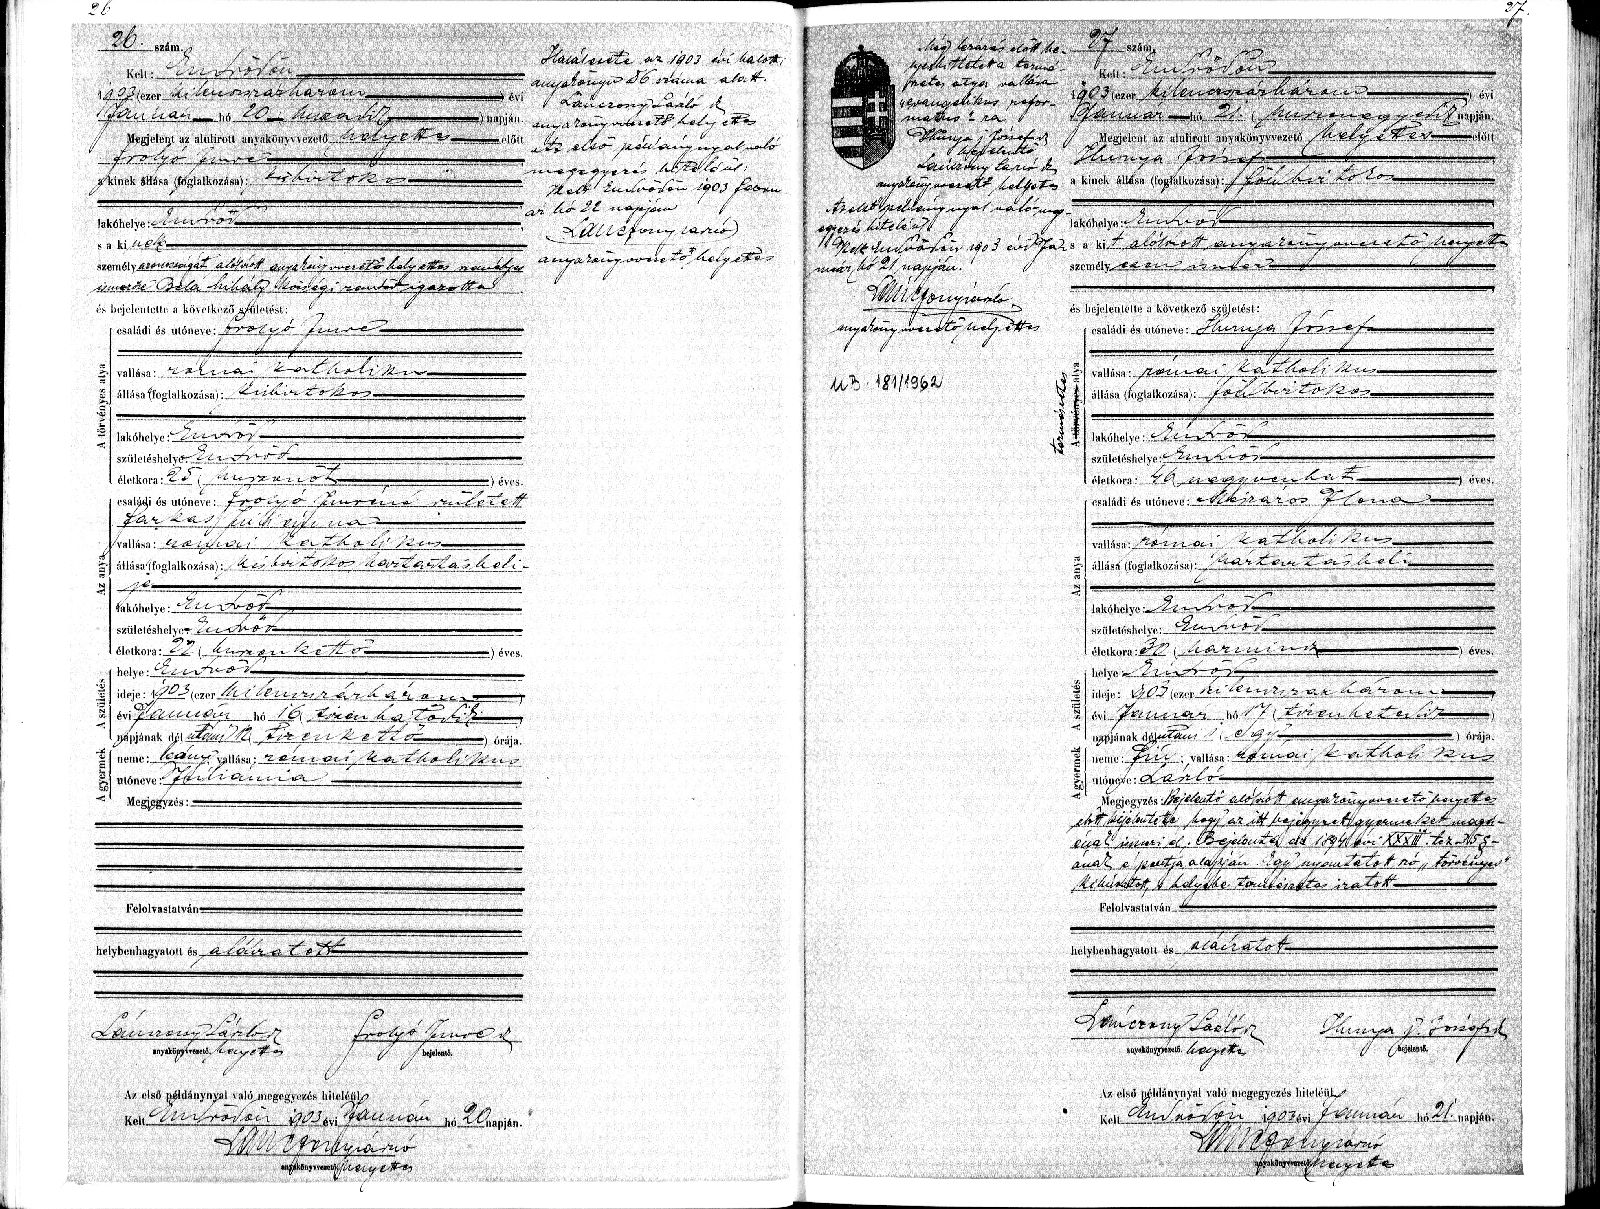 26
26. szám.
Kelt: Endrődön
1903 (ezer kilenczszázhárom) évi
Január hó 20 huszadik napján.
Megjelent az alulirott anyakönyvvezető helyettes előtt
Imre
a kinek állása (foglalkozása): kisbirtokos
lakóhelye: Endrőd
s a kinek
személyazonosságát alólirott anyakönyvvezető helyettes
Béla Mihály községi rendőr igazolta
és bejelentette a következő születést:
A törvényes atya
családi és utóneve: Imre
vallása: római katholikus
állása (foglalkozása): kisbirtokos
lakóhelye: Endrőd
születéshelye: Endrőd
életkora: 25 (huszonöt) éves.
Az anya
családi és utóneve: Imréné született
Farkas
vallása: római katholikus
állása (foglalkozása): kisbirtokos háztartásbeli-
je
lakóhelye: Endrőd
születéshelye: Endrőd
életkora: 22 (huszonkettő) éves.
A születés
helye: Endrőd
ideje: 1903 (ezer kilenczszázhárom)
évi Január hó 16 (tizenhatodik)
napjának dél utáni 12 (tizenkettő) órája.
A gyermek
neme: leány vallása: római katholikus
utóneve: Juliánna
Megjegyzés:
Felolvastatván
helybenhagyatott és aláiratott
Lánczony László
anyakönyvvezető. helyettes
Imre
bejelentő.
Az első példánynyal való megegyezés hiteléül
Kelt Endrődön 1903 évi Január hó 20 napján.
Lánczony László
anyakönyvvezető helyettes
Halálesete az 1903 évi halotti
anyakönyv 86 száma alatt.
Lánczony László
anyakönyvvezető helyettes
Az első példánynyal való
megegyezés hiteléül
Kelt Endrődön 1903
hó 22 napján
Lánczony László
anyakönyvvezető helyettes
27.
27 szám.
Kelt: Endrődön
1903 (ezer kilenczszázhárom) évi
Január hó 21. (huszonegyedik) napján.
Megjelent az alulirott anyakönyvvezető helyettes előtt
Hunya József
a kinek állása (foglalkozása): földbirtokos
lakóhelye: Endrőd
s a kit alólirott anyakönyvvezető helyettes
személyesen ismer
és bejelentette a következő születést:
A törvényes atya
természetes
családi és utóneve: Hunya József
vallása: római katholikus
állása (foglalkozása): földbirtokos
lakóhelye: Endrőd
születéshelye: Endrőd
életkora: 46 (negyvenhat) éves.
Az anya
családi és utóneve: Mészáros Ilona
vallása: római katholikus
állása (foglalkozása): háztartásbeli
lakóhelye: Endrőd
születéshelye: Endrőd
életkora: 30 (harmincz) éves.
A születés
helye: Endrőd
ideje: 1903 (ezer kilenczszázhárom)
évi Január hó 17 (tizenhetedik)
napjának délutáni 1 (egy) órája.
A gyermek
neme: Fiú vallása: római katholikus
utóneve: László
Megjegyzés: Bejelentő alólirott anyakönyvvezető helyettes
előtt kijelentette hogy az itt bejegyzett gyermeket magá-
énak ismeri el. Bejelentés az 1894 évi XXXIII. t.cz.
alapján. Egy nyomtatott szó „törvényes"
helyébe természetes iratott
Felolvastatván
helybenhagyatott és aláiratott
Lánczony László
anyakönyvvezető. helyettes
Hunya József
bejelentő.
Az első példánynyal való megegyezés hiteléül
Kelt Endrődön 1903 évi Január hó 21. napján.
Lánczony László
anyakönyvvezető helyettes
Még lezárás előtt be-
jelentetett a termé-
szetes atya vallása
evangelikus refor-
mátus
Hunya József
bejelentő
Lánczony László
anyakönyvvezető helyettes
Az első példánynyal való meg-
egyezés hiteléül
Kelt Endrődön 1903 évi Ja-
nuár hó 21 napján.
Lánczony László
anyakönyvvezető helyettes
181/1962